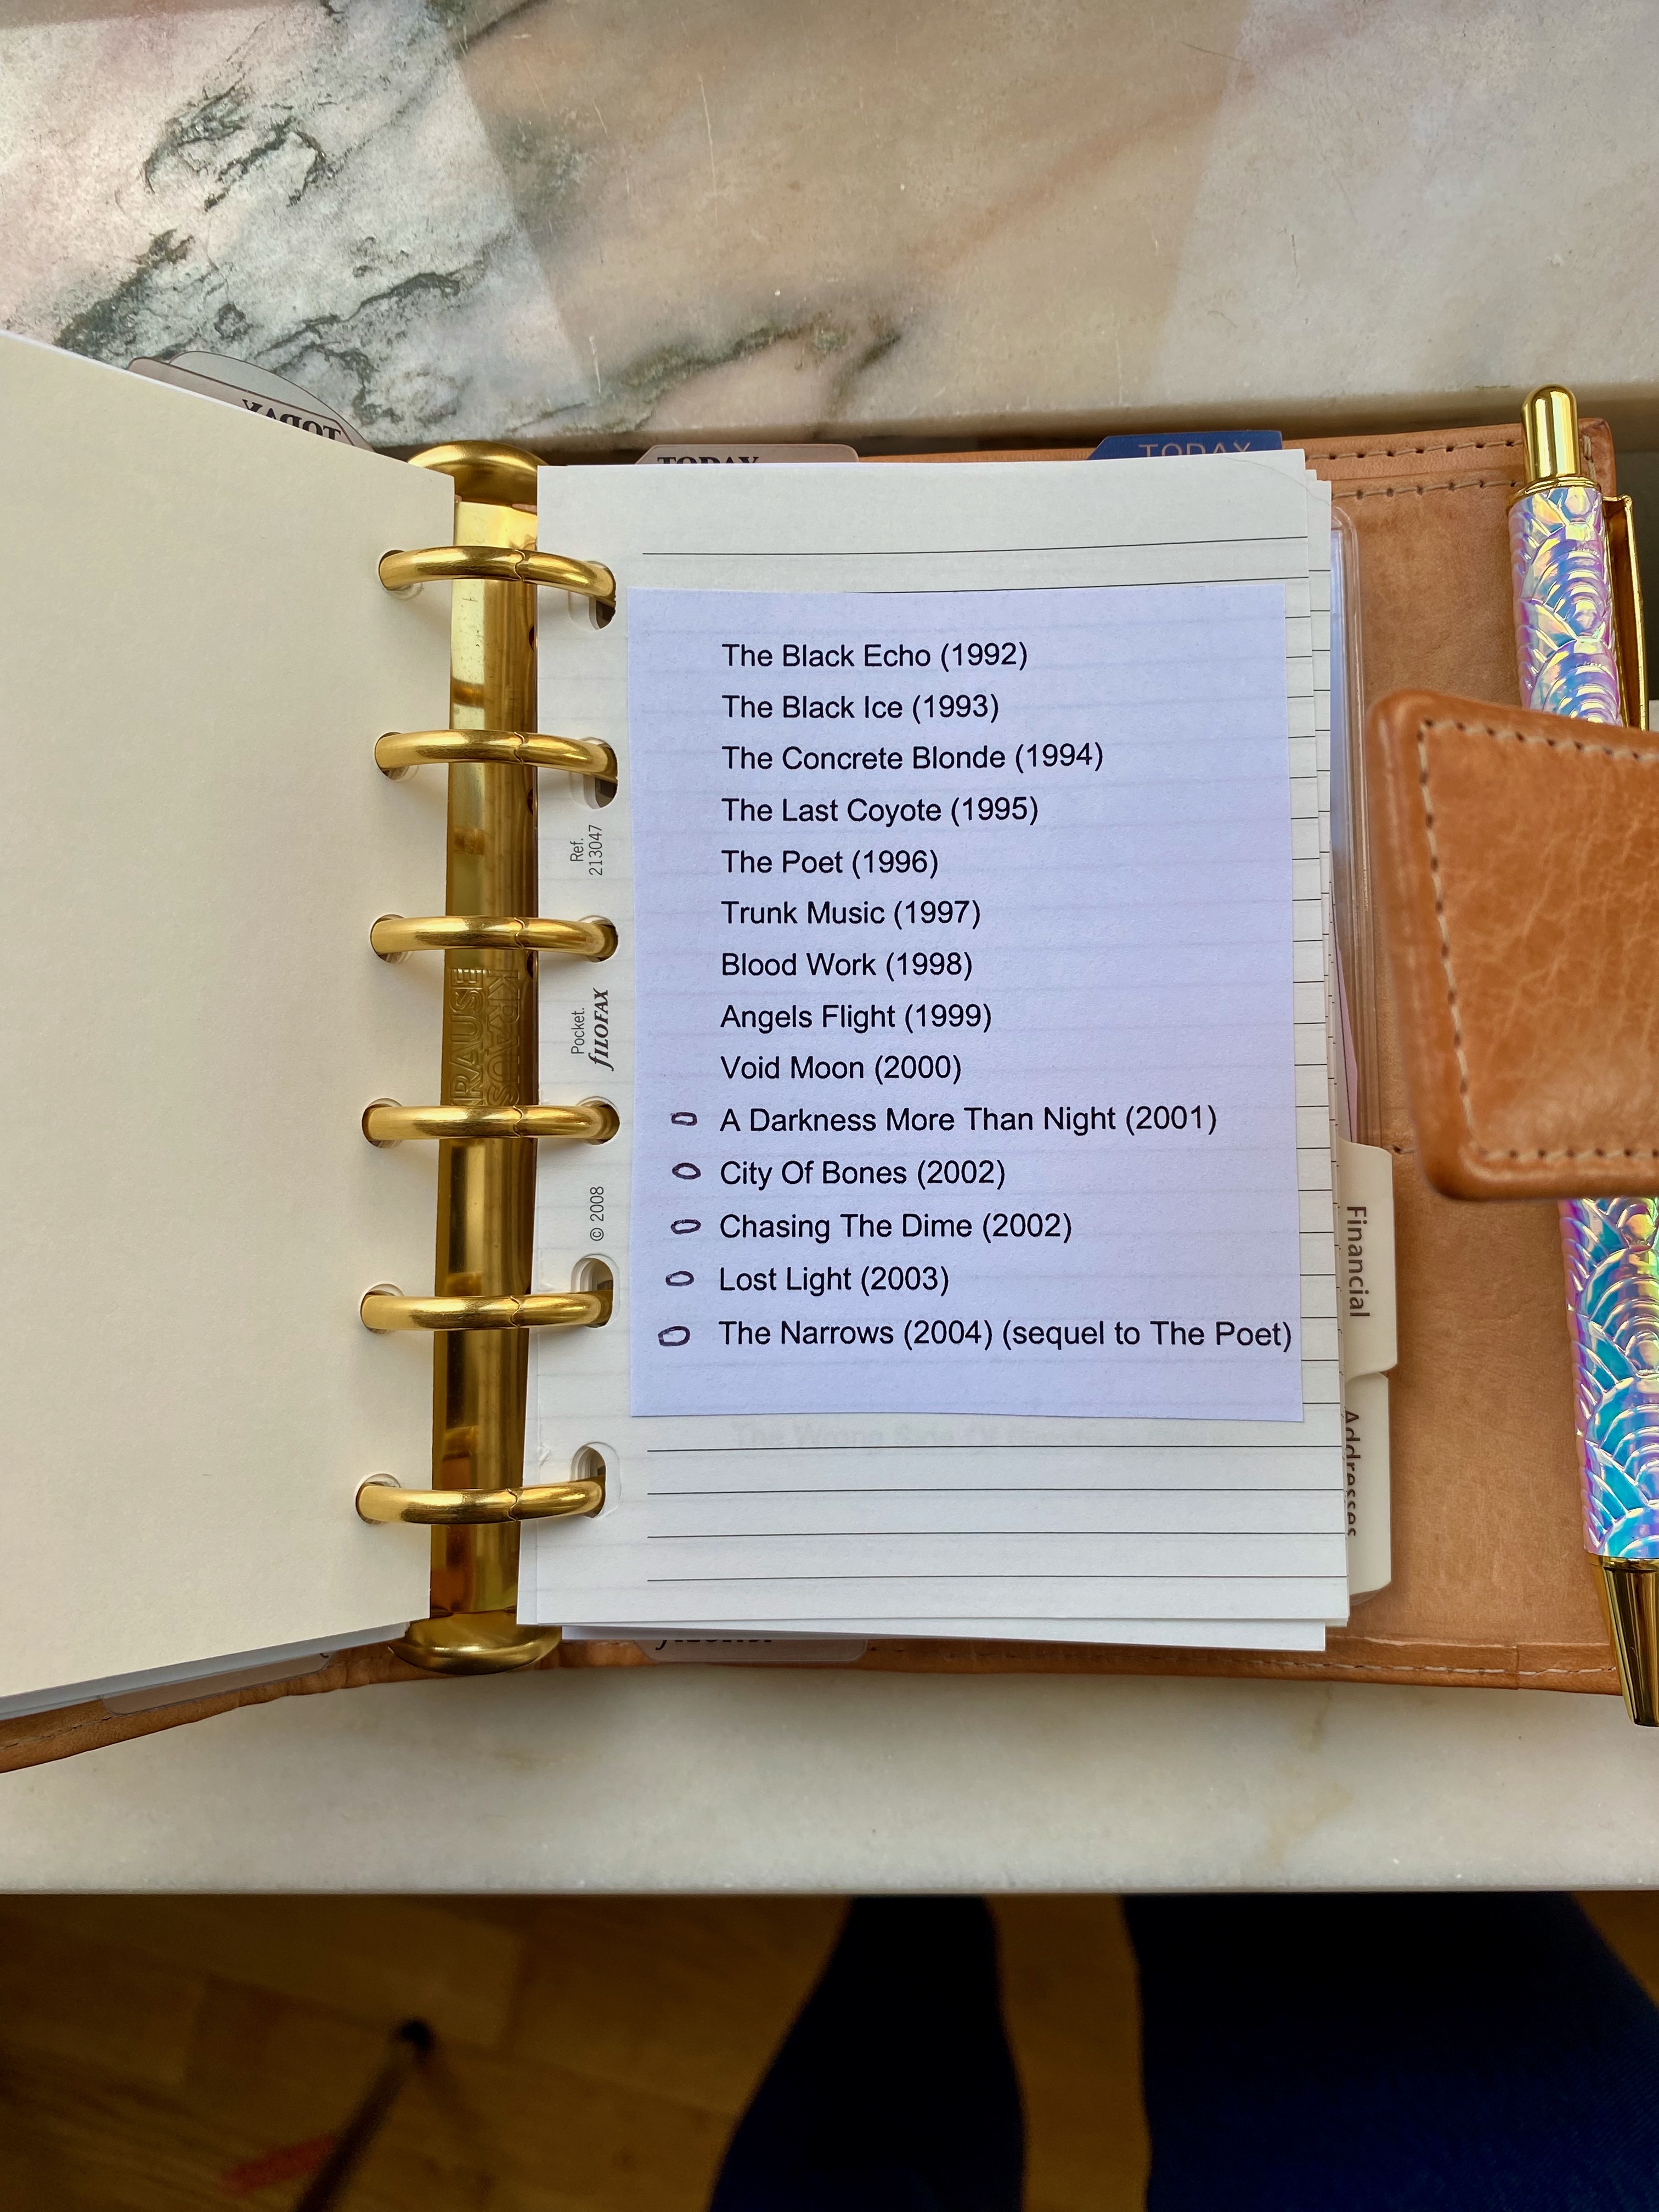 TODAY
TODAY
TODAY
The Black Echo (1992)
The Black Ice (1993)
The Concrete Blonde (1994)
The Last Coyote (1995)
The Poet (1996)
Trunk Music (1997)
Blood Work (1998)
Angels Flight (1999)
Void Moon (2000)
A Darkness More Than Night (2001)
City Of Bones (2002)
Chasing The Dime (2002)
Lost Light (2003)
The Narrows (2004) (sequel to The Poet)
Ref.
213047
Pocket.
fILOFAX
© 2008
KRAUSE
Financial
Addresses